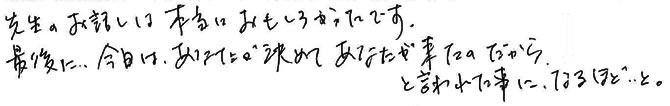 先生のお話しは本当におもしろかったです。
最後に…今日は、あなたが決めてあなたが来たのだから、
と言われた事に、なるほど…と。